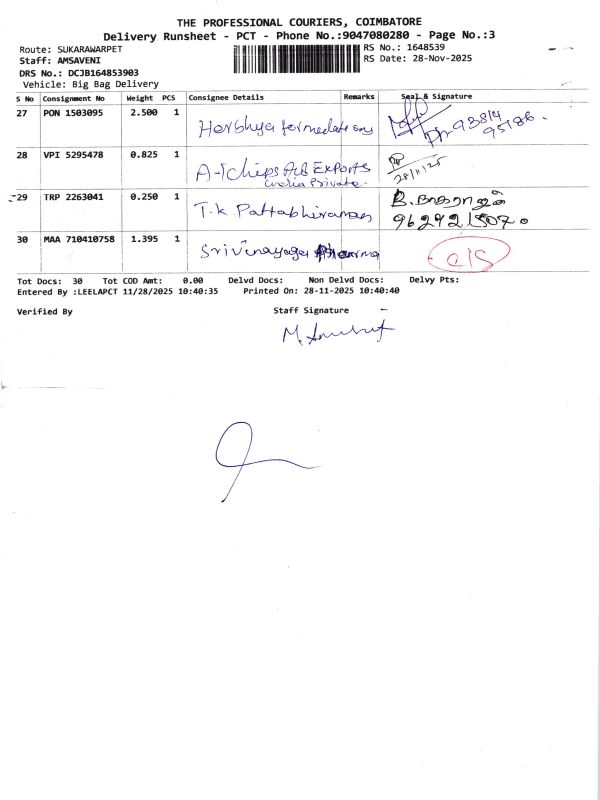 THE PROFESSIONAL COURIERS, COIMBATORE
Delivery Runsheet - PCT - Phone No.:9047080280 - Page No.:3
Route: SUKARAWARPET
RS No.: 1648539
Staff: AMSAVENI
RS Date: 28-Nov-2025
DRS No.: DCJB164853903
Vehicle: Big Bag Delivery
S No Consignment No Weight PCS Consignee Details Remarks Seal & Signature
27 PON 1503095 2.500 1 Herbhya formulations
Ph 93814
95186
28 VPI 5295478 0.825 1 A-1 Chips And EXPORTS
India Private.
28/11/25
29 TRP 2263041 0.250 1 T.k Pattabhiraman
B. நாகராஜன்
9629215070
30 MAA 710410758 1.395 1 Sri Vinayaga Pharma
C/S
Tot Docs: 30 Tot COD Amt: 0.00 Delvd Docs: Non Delvd Docs: Delvy Pts:
Entered By :LEELAPCT 11/28/2025 10:40:35 Printed On: 28-11-2025 10:40:40
Verified By Staff Signature